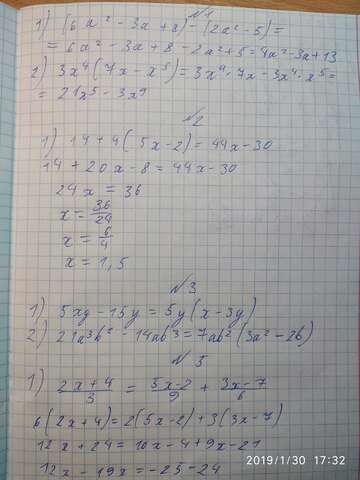 №1
1) (6a² - 3a + 8) - (2a² - 5) =
= 6a² - 3a + 8 - 2a² + 5 = 4a² - 3a + 13
2) 3x⁴(7x - x⁵) = 3x⁴ · 7x - 3x⁴ · x⁵ =
= 21x⁵ - 3x⁹
№2
1) 14 + 4(5x - 2) = 44x - 30
14 + 20x - 8 = 44x - 30
24x = 36
x = 36/24
x = 6/4
x = 1,5
№3
1) 5xy - 15y = 5y(x - 3y)
2) 21a³b² - 14ab³ = 7ab²(3a² - 2b)
№5
1) (2x + 4)/3 = (5x - 2)/9 + (3x - 7)/6
6(2x + 4) = 2(5x - 2) + 3(3x - 7)
12x + 24 = 10x - 4 + 9x - 21
12x - 19x = -25 - 24
2019/1/30 17:32